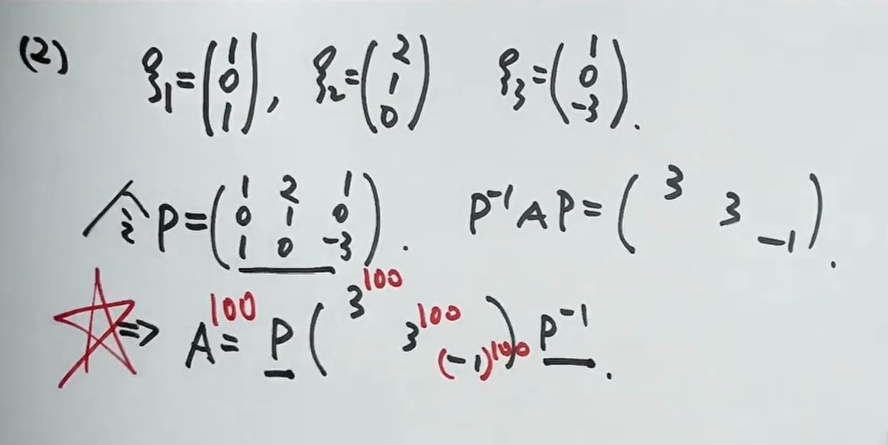 (2) ξ₁=(1 0 1), ξ₂=(2 1 0) ξ₃=(1 0 -3).
令 P=(1 2 1
0 1 0
1 0 -3). P⁻¹AP=(3 3 -1).
⇒ A¹⁰⁰=P(3¹⁰⁰ 3¹⁰⁰ (-1)¹⁰⁰)P⁻¹.